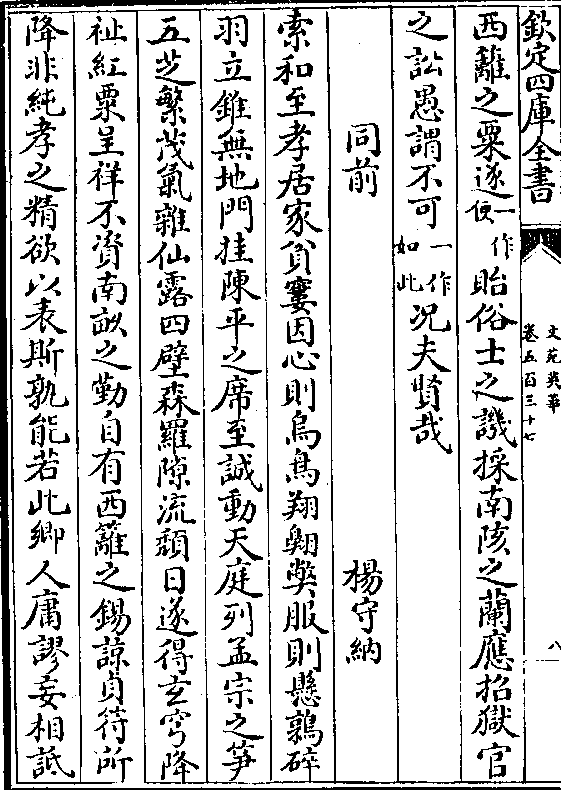 欽定四庫全書
文苑英華
卷五百三十七
八
西籬之粟遂一作便貽俗士之譏採南陔之蘭應招獄官
之訟愚謂不可一作如此况夫賢哉
同前 楊守納
索和至孝居家貧窶因心則烏鳥翔翺弊服則懸鶉碎
羽立錐無地門挂陳平之席至誠動天庭列孟宗之笋
五芝繁茂氣雜仙露四壁森羅隙流頽日遂得玄穹降
祉紅粟呈祥不資南畝之勤自有西籬之錫諒貞符所
降非純孝之精欲以表斯孰能若此鄉人庸謬妄相詆